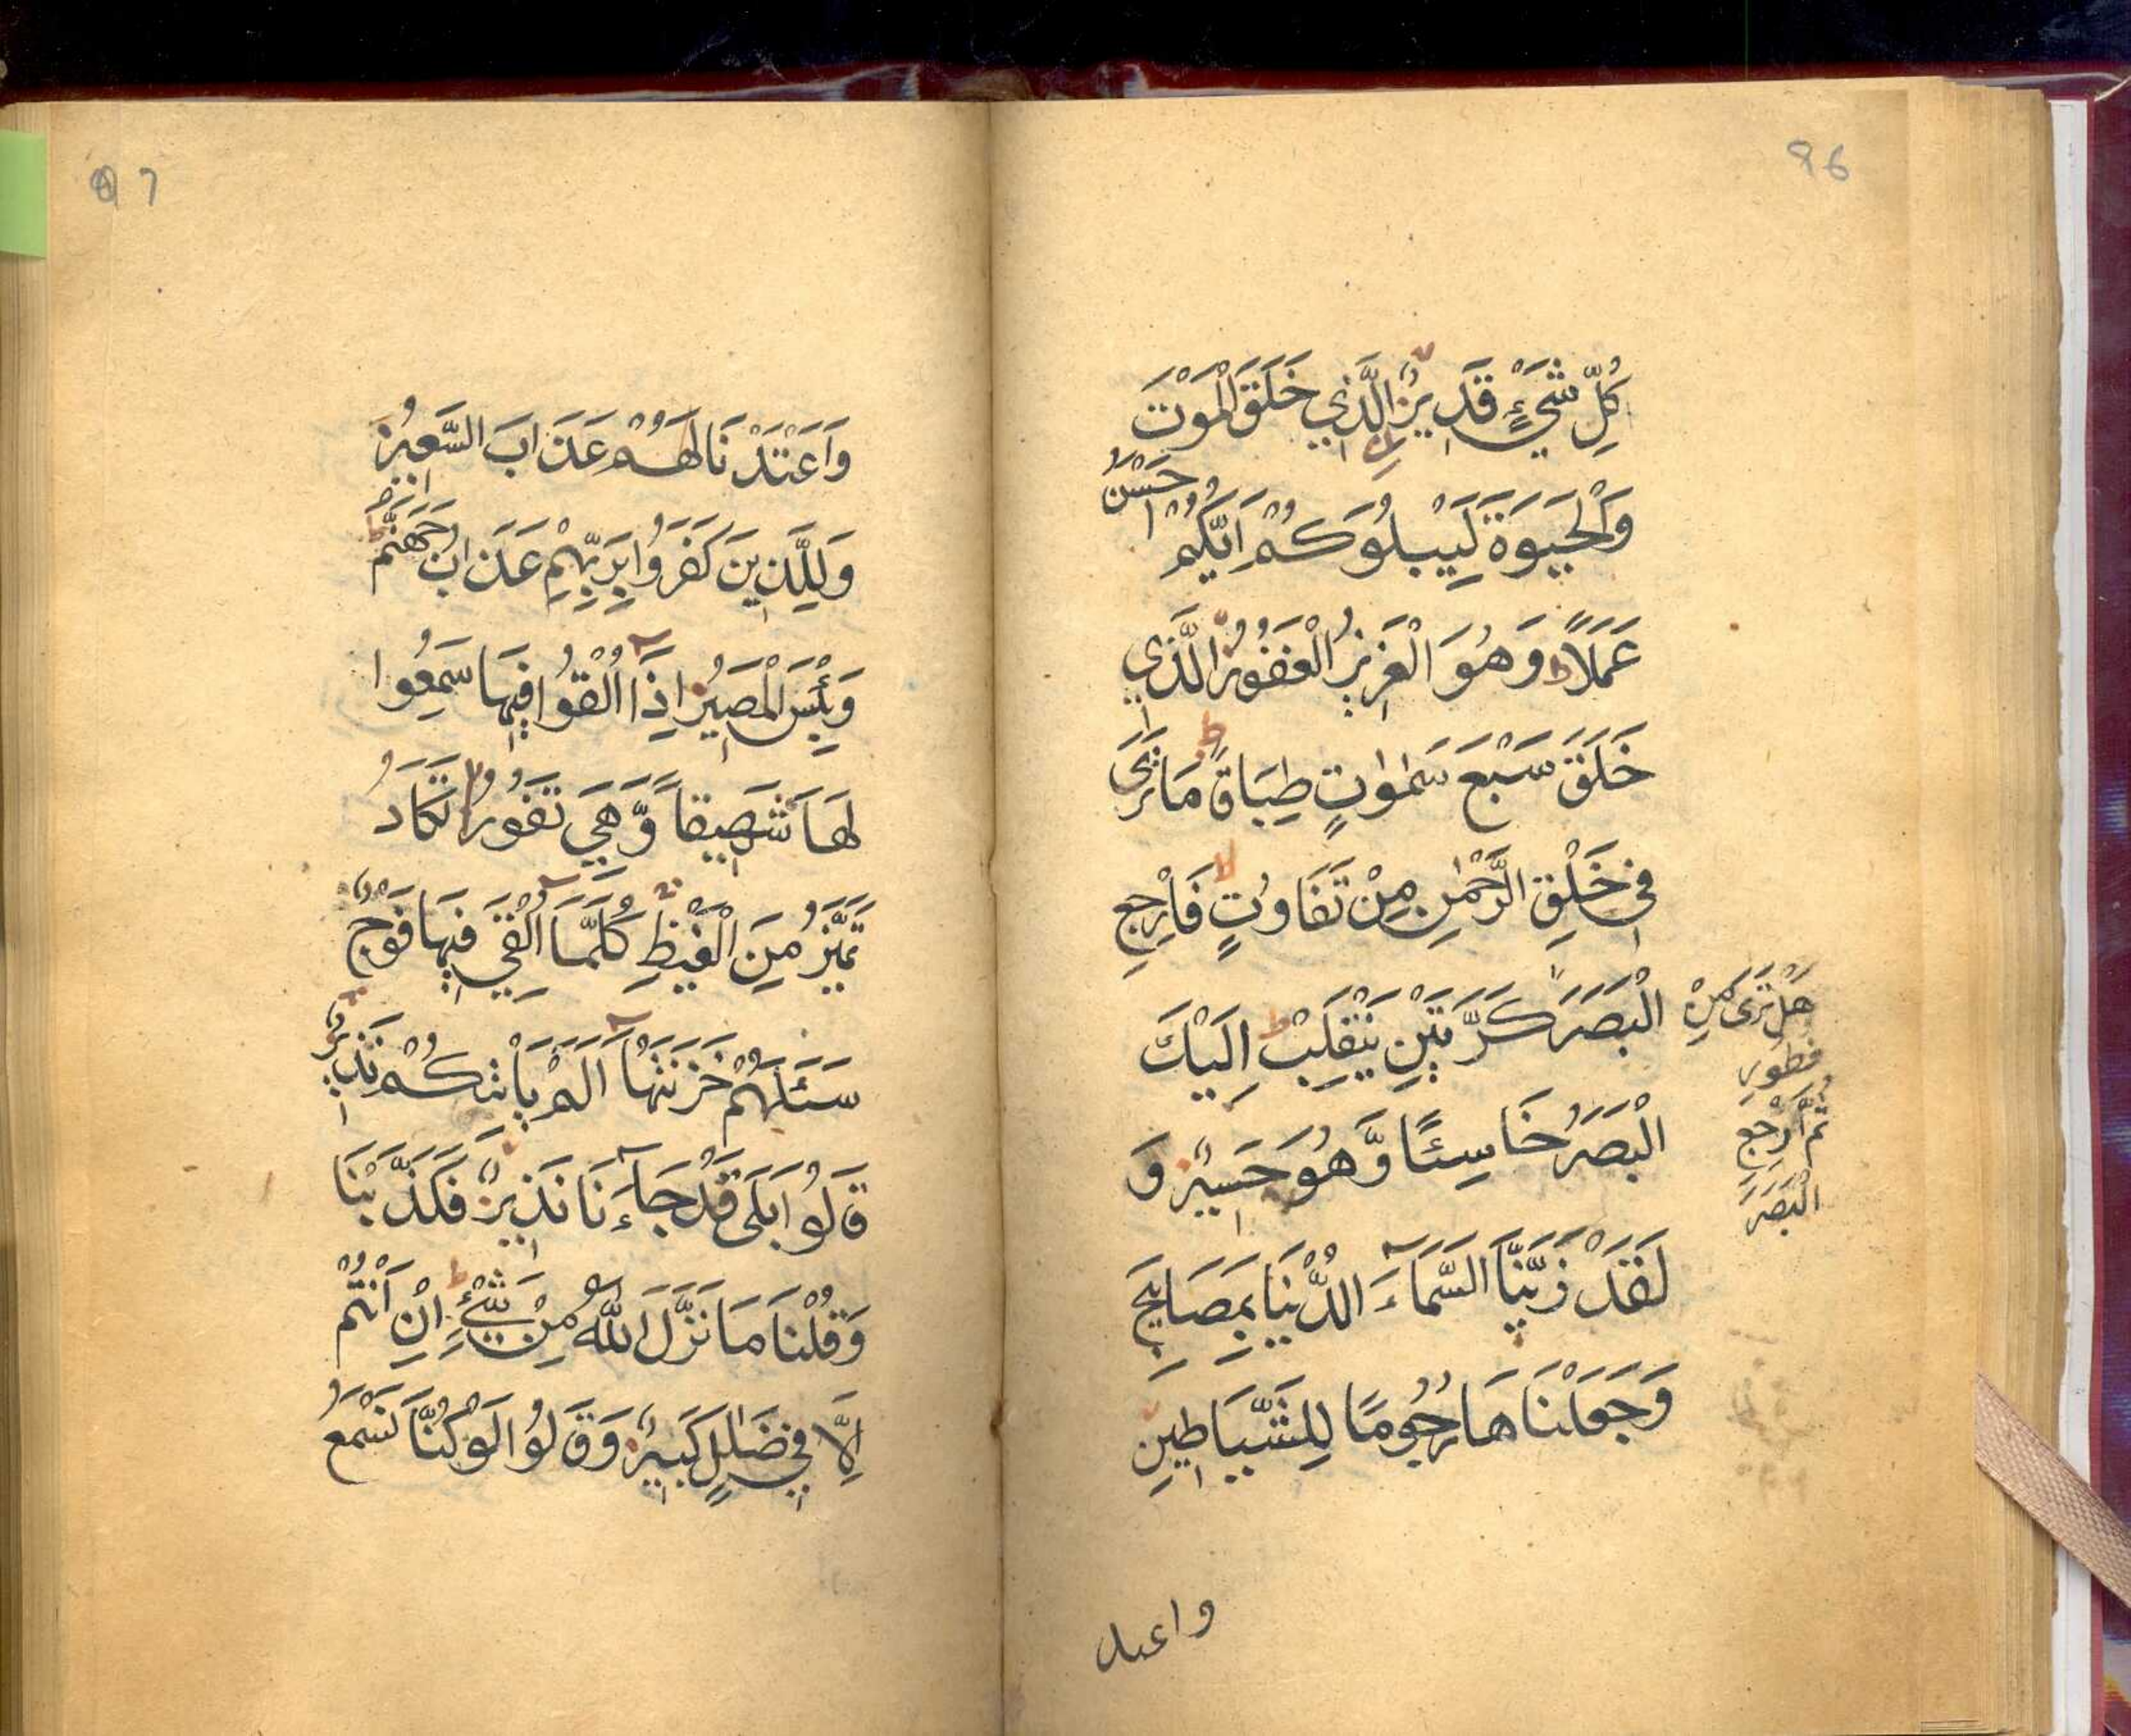 96
كُلِّ شَيْءٍ قَدِيرٌ الَّذِي خَلَقَ الْمَوْتَ
وَالْحَيٰوةَ لِيَبْلُوَكُمْ اَيُّكُمْ اَحْسَنُ
عَمَلًا ط وَهُوَ الْعَزِيزُ الْغَفُورُ الَّذِي
خَلَقَ سَبْعَ سَمٰوٰتٍ طِبَاقًا ط مَا تَرٰى
فِي خَلْقِ الرَّحْمٰنِ مِنْ تَفَاوُتٍ فَارْجِعِ
الْبَصَرَ كَرَّتَيْنِ يَنْقَلِبْ اِلَيْكَ
هَلْ تَرٰى مِنْ
فطور
ثُمَّ ارْجِعِ
الْبَصَرَ
الْبَصَرُ خَاسِئًا وَّهُوَ حَسِيرٌ وَ
لَقَدْ زَيَّنَّا السَّمَآءَ الدُّنْيَا بِمَصَابِيحَ
وَجَعَلْنَاهَا رُجُومًا لِلشَّيَاطِينِ
واعتد
97
وَاَعْتَدْنَا لَهُمْ عَذَابَ السَّعِيرِ
وَلِلَّذِينَ كَفَرُوا بِرَبِّهِمْ عَذَابُ جَهَنَّمَ ط
وَبِئْسَ الْمَصِيرُ اِذَا اُلْقُوا فِيهَا سَمِعُوا
لَهَا شَهِيقًا وَّهِيَ تَفُورُ لا تَكَادُ
تَمَيَّزُ مِنَ الْغَيْظِ كُلَّمَا اُلْقِيَ فِيهَا فَوْجٌ
سَئَلَهُمْ خَزَنَتُهَا اَلَمْ يَاْتِكُمْ نَذِيرٌ
قَالُوا بَلٰى قَدْ جَآءَنَا نَذِيرٌ فَكَذَّبْنَا
وَقُلْنَا مَا نَزَّلَ اللّٰهُ مِنْ شَيْءٍ ط اِنْ اَنْتُمْ
اِلَّا فِي ضَلٰلٍ كَبِيرٍ وَقَالُوا لَوْ كُنَّا نَسْمَعُ